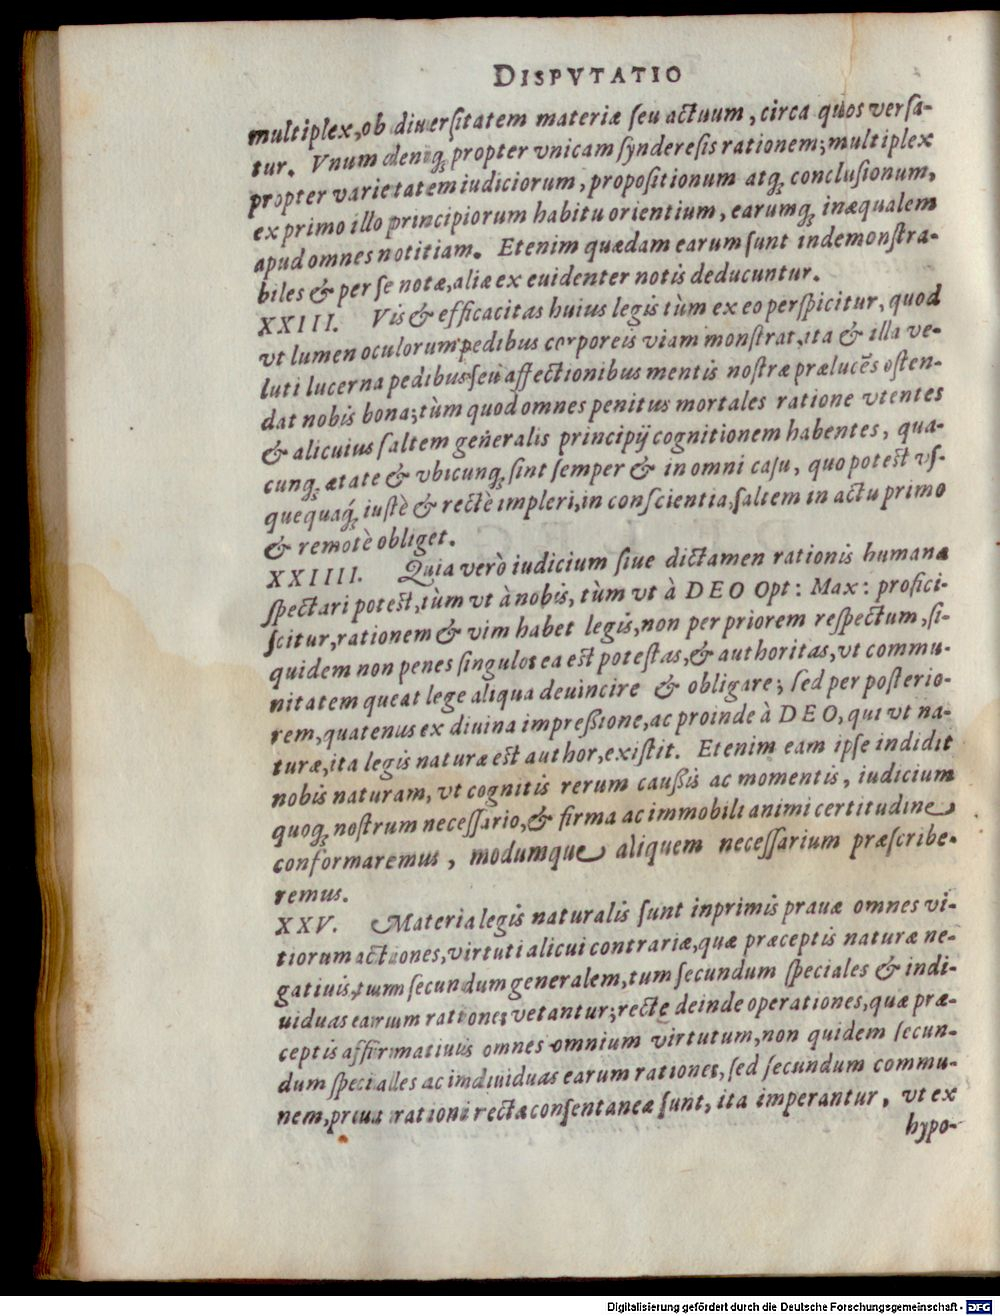 DISPVTATIO
multiplex, ob diuersitatem materiæ seu actuum, circa quos versa-
tur. Vnum deniq; propter vnicam synderesis rationem; multiplex
propter varietatem iudiciorum, propositionum atq; conclusionum,
ex primo illo principiorum habitu orientium, earumq; inæqualem
apud omnes notitiam. Etenim quædam earum sunt indemonstra-
biles & per se notæ, aliæ ex euidenter notis deducuntur.
XXIII. Vis & efficacitas huius legis tùm ex eo perspicitur, quod
vt lumen oculorum pedibus corporeis viam monstrat, ita & illa ve-
luti lucerna pedibus seu affectionibus mentis nostræ prælucẽs osten-
dat nobis bona; tùm quod omnes penitus mortales ratione vtentes
& alicuius saltem generalis principij cognitionem habentes, qua-
cunq; ætate & vbicunq; sint semper & in omni casu, quo potest vs-
quequaq́; iustè & rectè impleri, in conscientia, saltem in actu primo
& remotè obliget.
XXIIII. Quia verò iudicium siue dictamen rationis humanæ
spectari potest, tùm vt à nobis, tùm vt à DEO Opt: Max: profici-
scitur, rationem & vim habet legis, non per priorem respectum, si-
quidem non penes singulos ea est potestas, & authoritas, vt commu-
nitatem queat lege aliqua deuincire & obligare; sed per posterio-
rem, quatenus ex diuina impreßione, ac proinde à DEO, qui vt na-
turæ, ita legis naturæ est author, existit. Etenim eam ipse indidit
nobis naturam, vt cognitis rerum caußis ac momentis, iudicium
quoq; nostrum necessario, & firma ac immobili animi certitudine
conformaremus, modumque aliquem necessarium præscribe-
remus.
XXV. Materia legis naturalis sunt inprimis prauæ omnes vi-
tiorum actiones, virtuti alicui contrariæ, quæ præceptis naturæ ne-
gatiuis, tum secundum generalem, tum secundum speciales & indi-
uiduas earum rationes vetantur; rectę deinde operationes, quæ præ-
ceptis affirmatiuis omnes omnium virtutum, non quidem secun-
dum speciales ac indiuiduas earum rationes, sed secundum commu-
nem, prout rationi rectæ consentaneæ sunt, ita imperantur, vt ex
hypo-
Digitalisierung gefördert durch die Deutsche Forschungsgemeinschaft - DFG